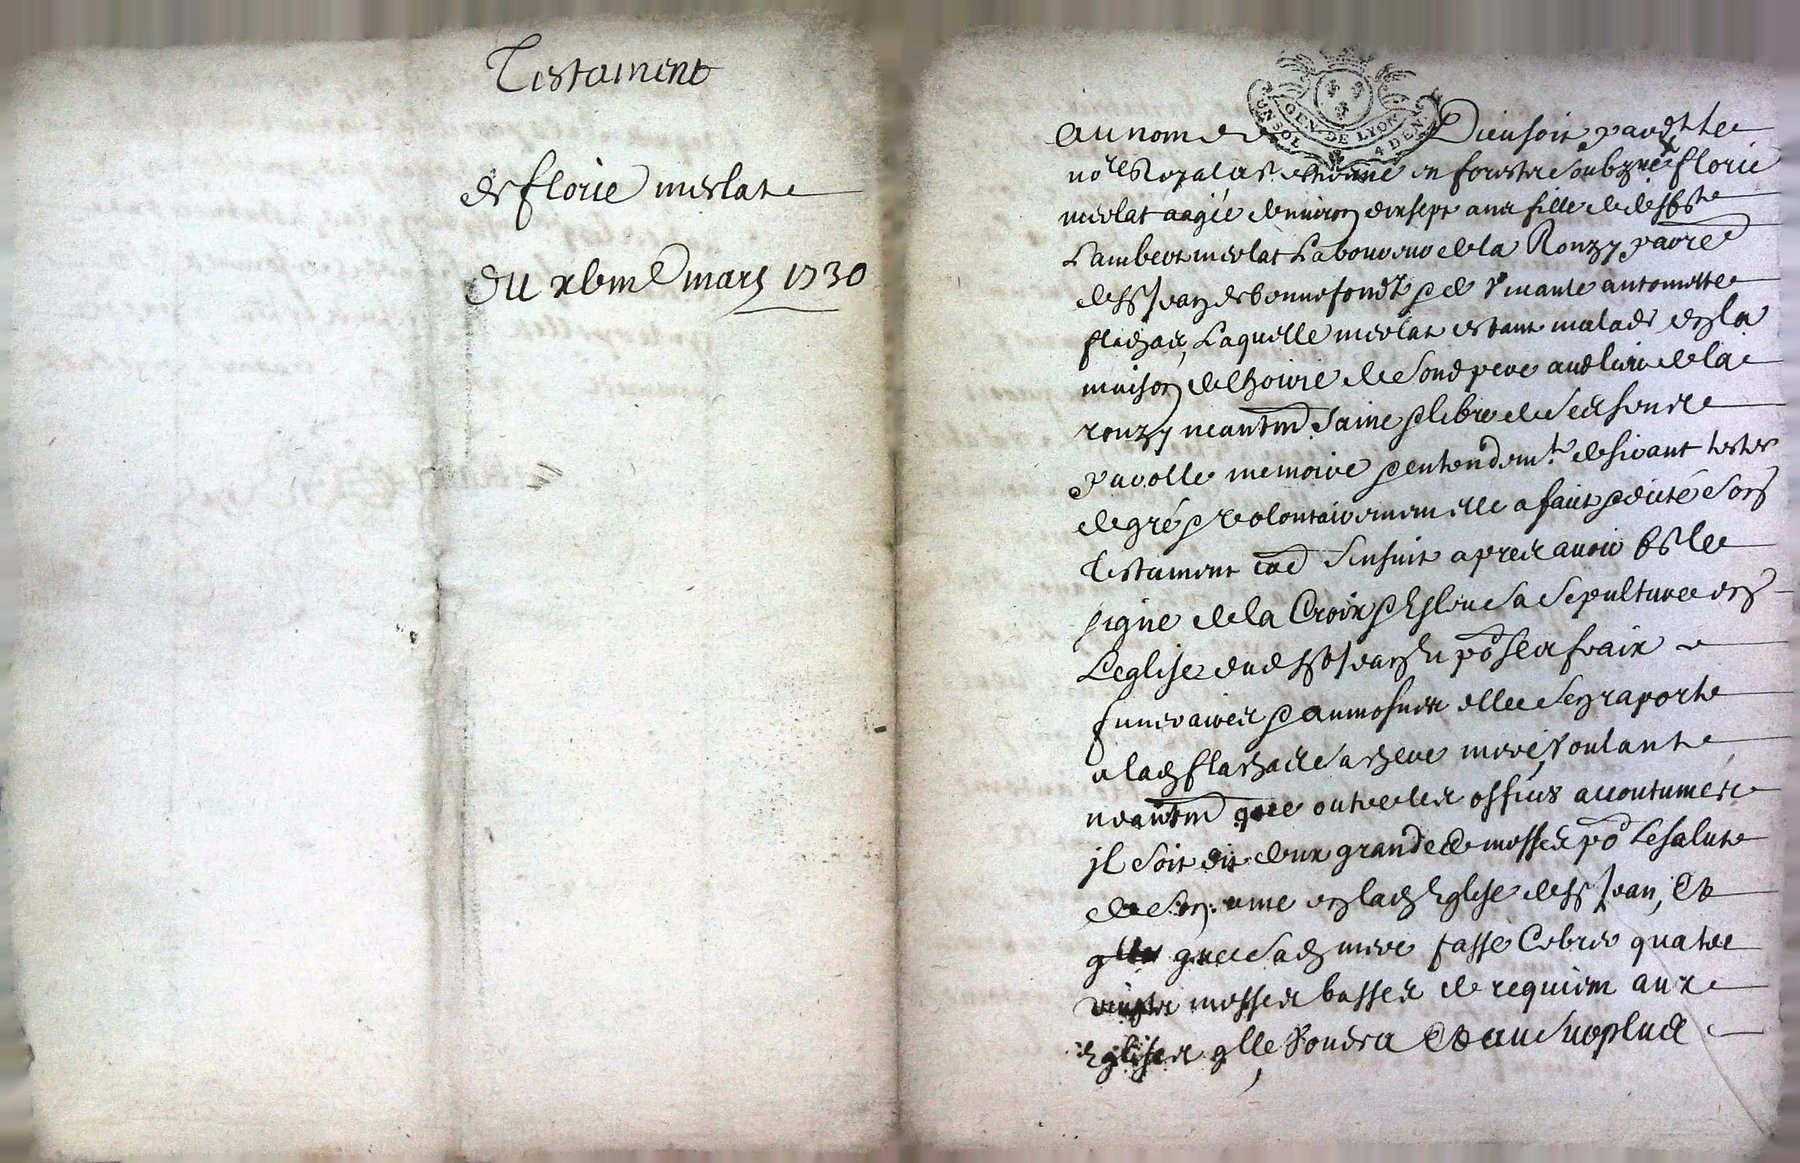 Testament
de florie merlat
du xbeme mars 1730
GEN. DE LYON
4 DEN.
au nom de Dieu soit pardt le
no.re Royal en forestz soubzne florie
merlat aagée denviron dixsept ans fille de defft
Lambert merlat Laboureur de la Ronzy parre
de st Jean de bonnefondz p de vivante antoinette
flachat, Laquelle merlat estant malade en la
maison de lhoirie de sond pere aud lieu de la
ronzy neantm saine p libre de ses sens
parolle memoire p entendemt. desirant tester
de gré p volontairement elle a fait p dicté son
testament co.e sensuit apres avoir fst le
signe de la Croix p Esleu sa sepulture en
Leglise dud st Jean, p.o les fraix
funeraires p aumosnes elle sen raporte
a lad flachat sa chere mere, voulant
neantm que outre les offices accoutumes
jl soit dit deux grandes messes po.r le salut
de son ame en lad Eglise de st Jean, Et
que sad mere fasse Celebrer quatre
vingts messes basses de requiem aux
Eglises qlle voudra Et au surplus